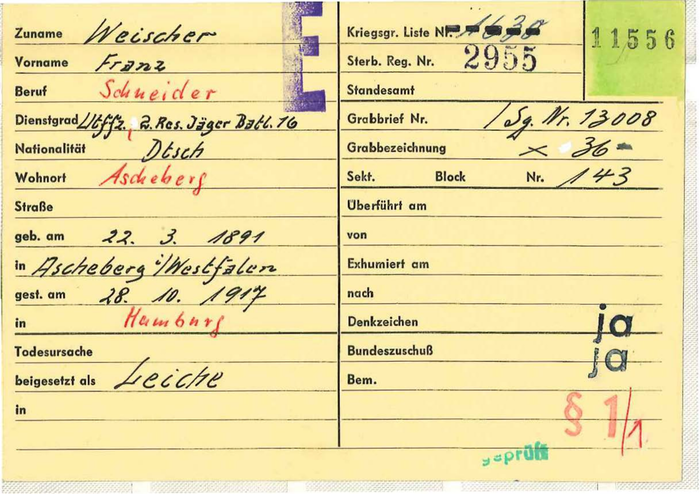 Zuname Weischer
Vorname Franz
Beruf Schneider
Dienstgrad Utffz., 2. Res. Jäger Batl. 16
Nationalität Dtsch
Wohnort Ascheberg
Straße
geb. am 22. 3. 1891
in Ascheberg i/Westfalen
gest. am 28. 10. 1917
in Hamburg
Todesursache
beigesetzt als Leiche
in
E
Kriegsgr. Liste Nr.
Sterb. Reg. Nr. 2955
Standesamt
11556
Grabbrief Nr. / Sg. Nr. 13008
Grabbezeichnung x 36-
Sekt. Block Nr. 143
Überführt am
von
Exhumiert am
nach
Denkzeichen ja
Bundeszuschuß ja
Bem.
§ 1/1
geprüft